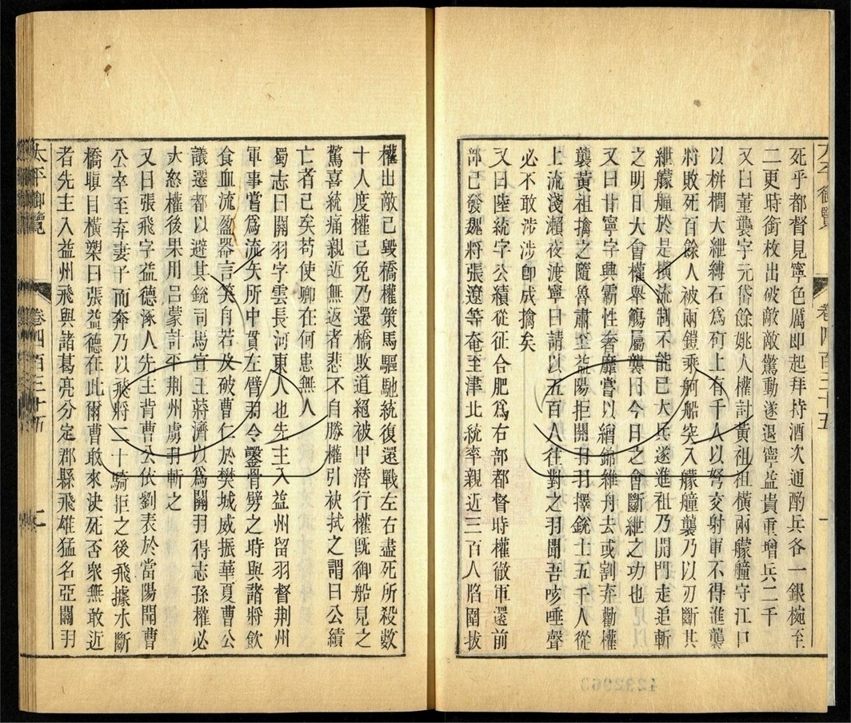 太平御覽 卷四百三十五 一
死乎都督見寧色厲即起拜持酒次通酌兵各一銀椀至
二更時銜枚出破敵敵驚動遂退寧益貴重增兵二千
又曰董襲字元代餘姚人權討黃祖祖橫兩艨艟守江口
以栟櫚大紲縛石為矴上有千人以弩交射軍不得進襲
將敗死百餘人被兩鎧乘舸船突入艨艟襲乃以刀斷其
紲艨艟於是橫流制不能已大兵遂進祖乃開門走追斬
之明日大會權舉觴屬襲曰今日之會斷紲之功也
又曰甘寧字興霸性奢靡嘗以繒錦維舟去或割棄勸權
襲黃祖擒之隨魯肅至益陽拒關羽羽擇銳士五千人從
上流淺瀨夜渡寧曰請以五百人往對之羽聞吾咳唾聲
必不敢涉涉卽成擒矣
又曰陸統字公績從征合肥為右部都督時權徹軍還前
部已發魏將張遼等奄至津北統率親近三百人陷圍扶
權出敵已毀橋權策馬驅馳統復還戰左右盡死所殺數
十人度權已免乃還橋敗道絕被甲潛行權旣御船見之
驚喜統痛親近無返者悲不自勝權引袂拭之謂曰公績
亡者已矣苟使卿在何患無人
蜀志曰關羽字雲長河東人也先主入益州留羽督荊州
軍事嘗爲流矢所中貫左臂羽令鑿骨劈之時與諸將飲
食血流盈器言笑自若攻破曹仁於樊城威振華夏曹公
議遷都以避其銳司馬宣王蔣濟以爲關羽得志孫權必
大怒權後果用呂蒙計平荊州虜羽斬之
又曰張飛字益德涿人先主背曹公依劉表於當陽聞曹
公卒至弃妻子而奔乃以飛將二十騎拒之後飛據水斷
橋瞋目橫槊曰張益德在此爾曹敢來決死否衆無敢近
者先主入益州飛與諸葛亮分定郡縣飛雄猛名亞關羽
太平御覽 卷四百三十五 七
4232963